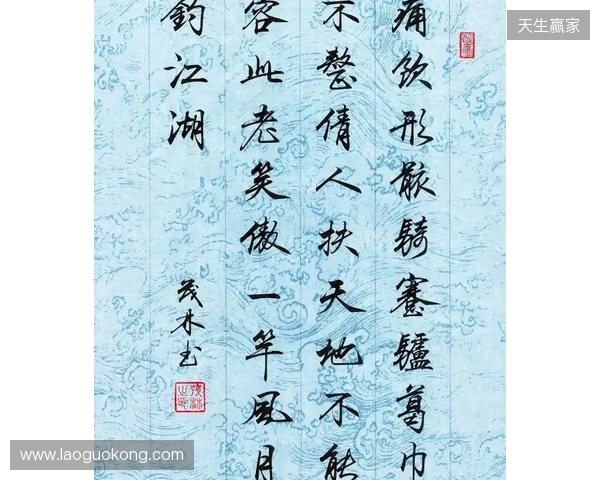 天生赢家
痛饮形骸骑蹇驴葛巾
不整倩人扶天地不能
容此老笑傲一竿风月
钓江湖
茂林书
www.laoguokong.com